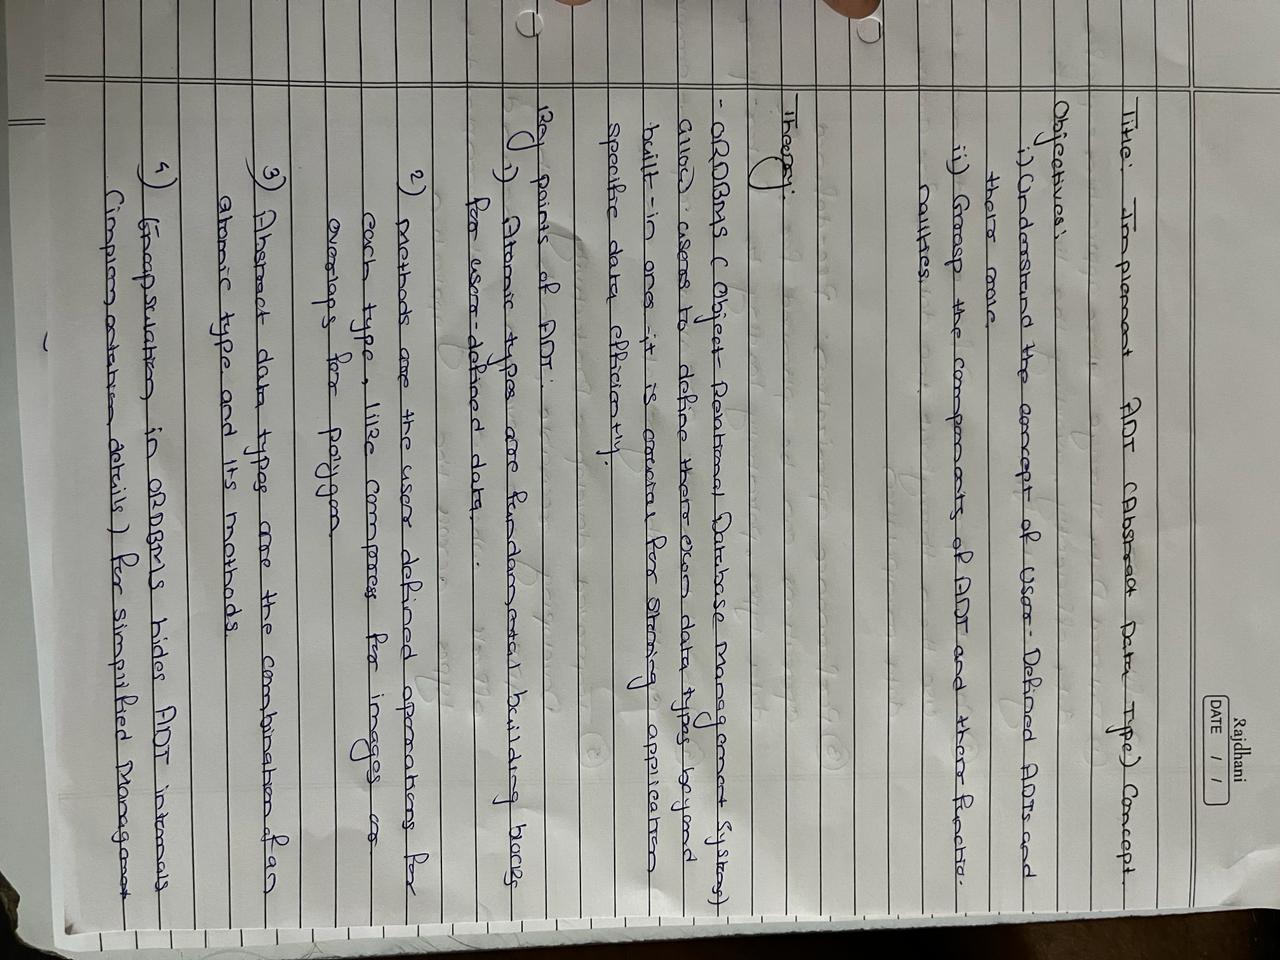 Rajdhani
DATE / /
Title: Implement ADT (Abstract Data Type) Concept.
Objectives:
i) Understand the concept of User-Defined ADTs and
their role
ii) Grasp the components of ADT and their functio-
nalities.
Theory:
- ORDBMS (Object-Relational Database Management System)
allow users to define their own data types beyond
built-in ones. it is crucial for storing application
specific data efficiently.
Key points of ADT:
1) Atomic types are fundamental building blocks
for user-defined data.
2) methods are the user defined operations for
each type, like compress for images or
overlaps for polygon
3) Abstract data types are the combination of an
atomic type and its methods
4) Encapsulation in ORDBMS hides ADT internals
(implementation details) for simplified Management